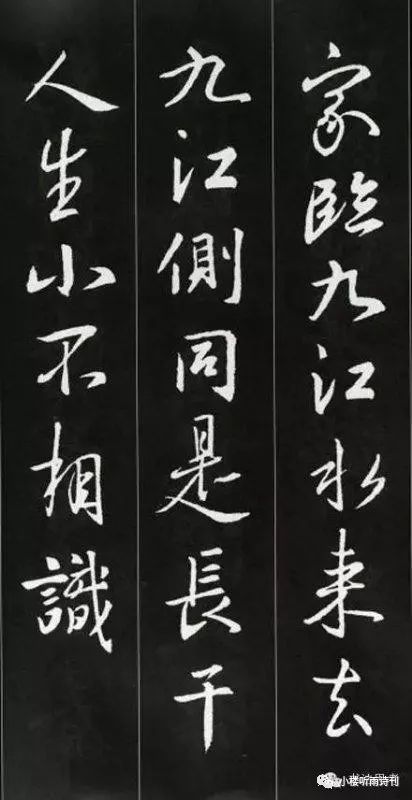 家臨九江水来去
九江側同是長干
人生小不相識
小楼听雨诗刊